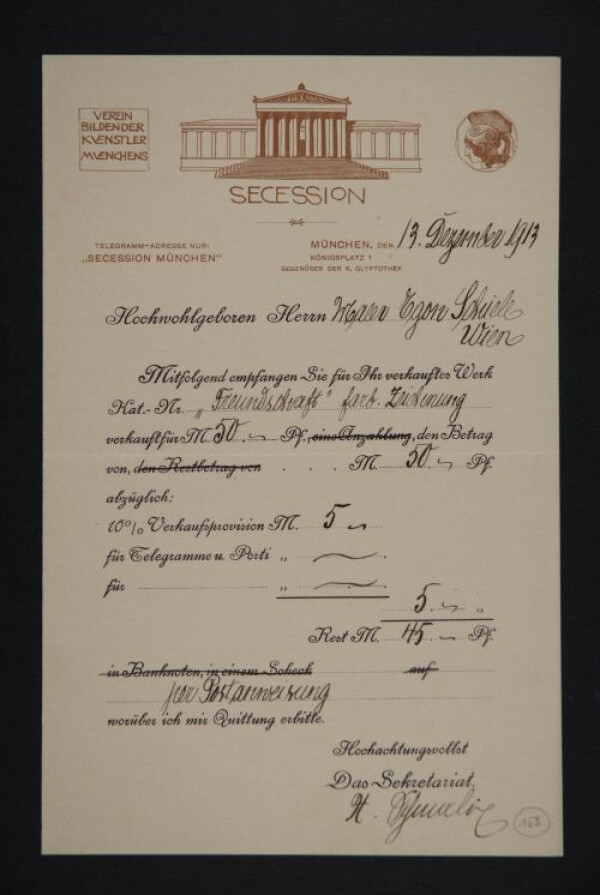 VEREIN
BILDENDER
KVENSTLER
MVENCHENS
SECESSION
TELEGRAMM-ADRESSE NUR:
„SECESSION MÜNCHEN"
MÜNCHEN, DEN 13. Dezember 1913
KÖNIGSPLATZ 1
GEGENÜBER DER K. GLYPTOTHEK
Hochwohlgeboren Herrn Maler Egon Schiele
Wien
Mitfolgend empfangen Sie für Ihr verkauftes Werk
Kat.-Nr. „Freundschaft" farb. Zeichnung
verkauft für M. 50.— Pf., eine Anzahlung, den Betrag
von, den Restbetrag von . . . M. 50.— Pf.
abzüglich:
10% Verkaufsprovision M. 5 —
für Telegramme u. Porti „ —
für „ —
5.— „
Rest M. 45.— Pf.
in Banknoten, in einem Scheck auf
per Postanweisung
worüber ich mir Quittung erbitte.
Hochachtungsvollst
Das Sekretariat.
H.
153